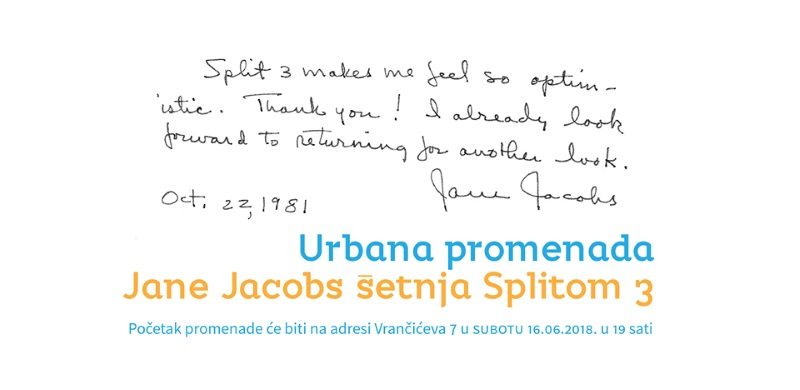 Split 3 makes me feel so optim-
istic. Thank you! I already look
forward to returning for another look.
Jane Jacobs
Oct. 22, 1981
Urbana promenada
Jane Jacobs šetnja Splitom 3
Početak promenade će biti na adresi Vrančićeva 7 u SUBOTU 16.06.2018. u 19 sati